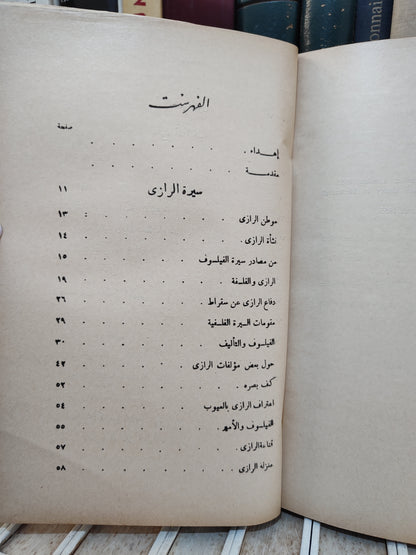 الفهرست
صفحة
إهداء . . . . . . .
مقدمة . . . . . .
سيرة الرازى ١١
موطن الرازى . . . . . . . : ١٣
نشأة الرازى . . . . . . . ١٤
من مصادر سيرة الفيلسوف . . . . . ١٥
الرازى والفلسفة . . . . . . ١٩
دفاع الرازى عن سقراط . . . . . ٢٦
مقومات السيرة الفلسفية . . . . . ٢٩
الفيلسوف والتأليف . . . . . . ٣٠
حول بعض مؤلفات الرازى . . . . . ٤٢
كف بصره . . . . . . . ٥٢
اعتراف الرازى بالعيوب . . . . . ٥٤
الفيلسوف والأمير . . . . . . ٥٥
قناعة الرازى . . . . . . . ٥٧
منزلة الرازى . . . . . . . ٥٨
onnai